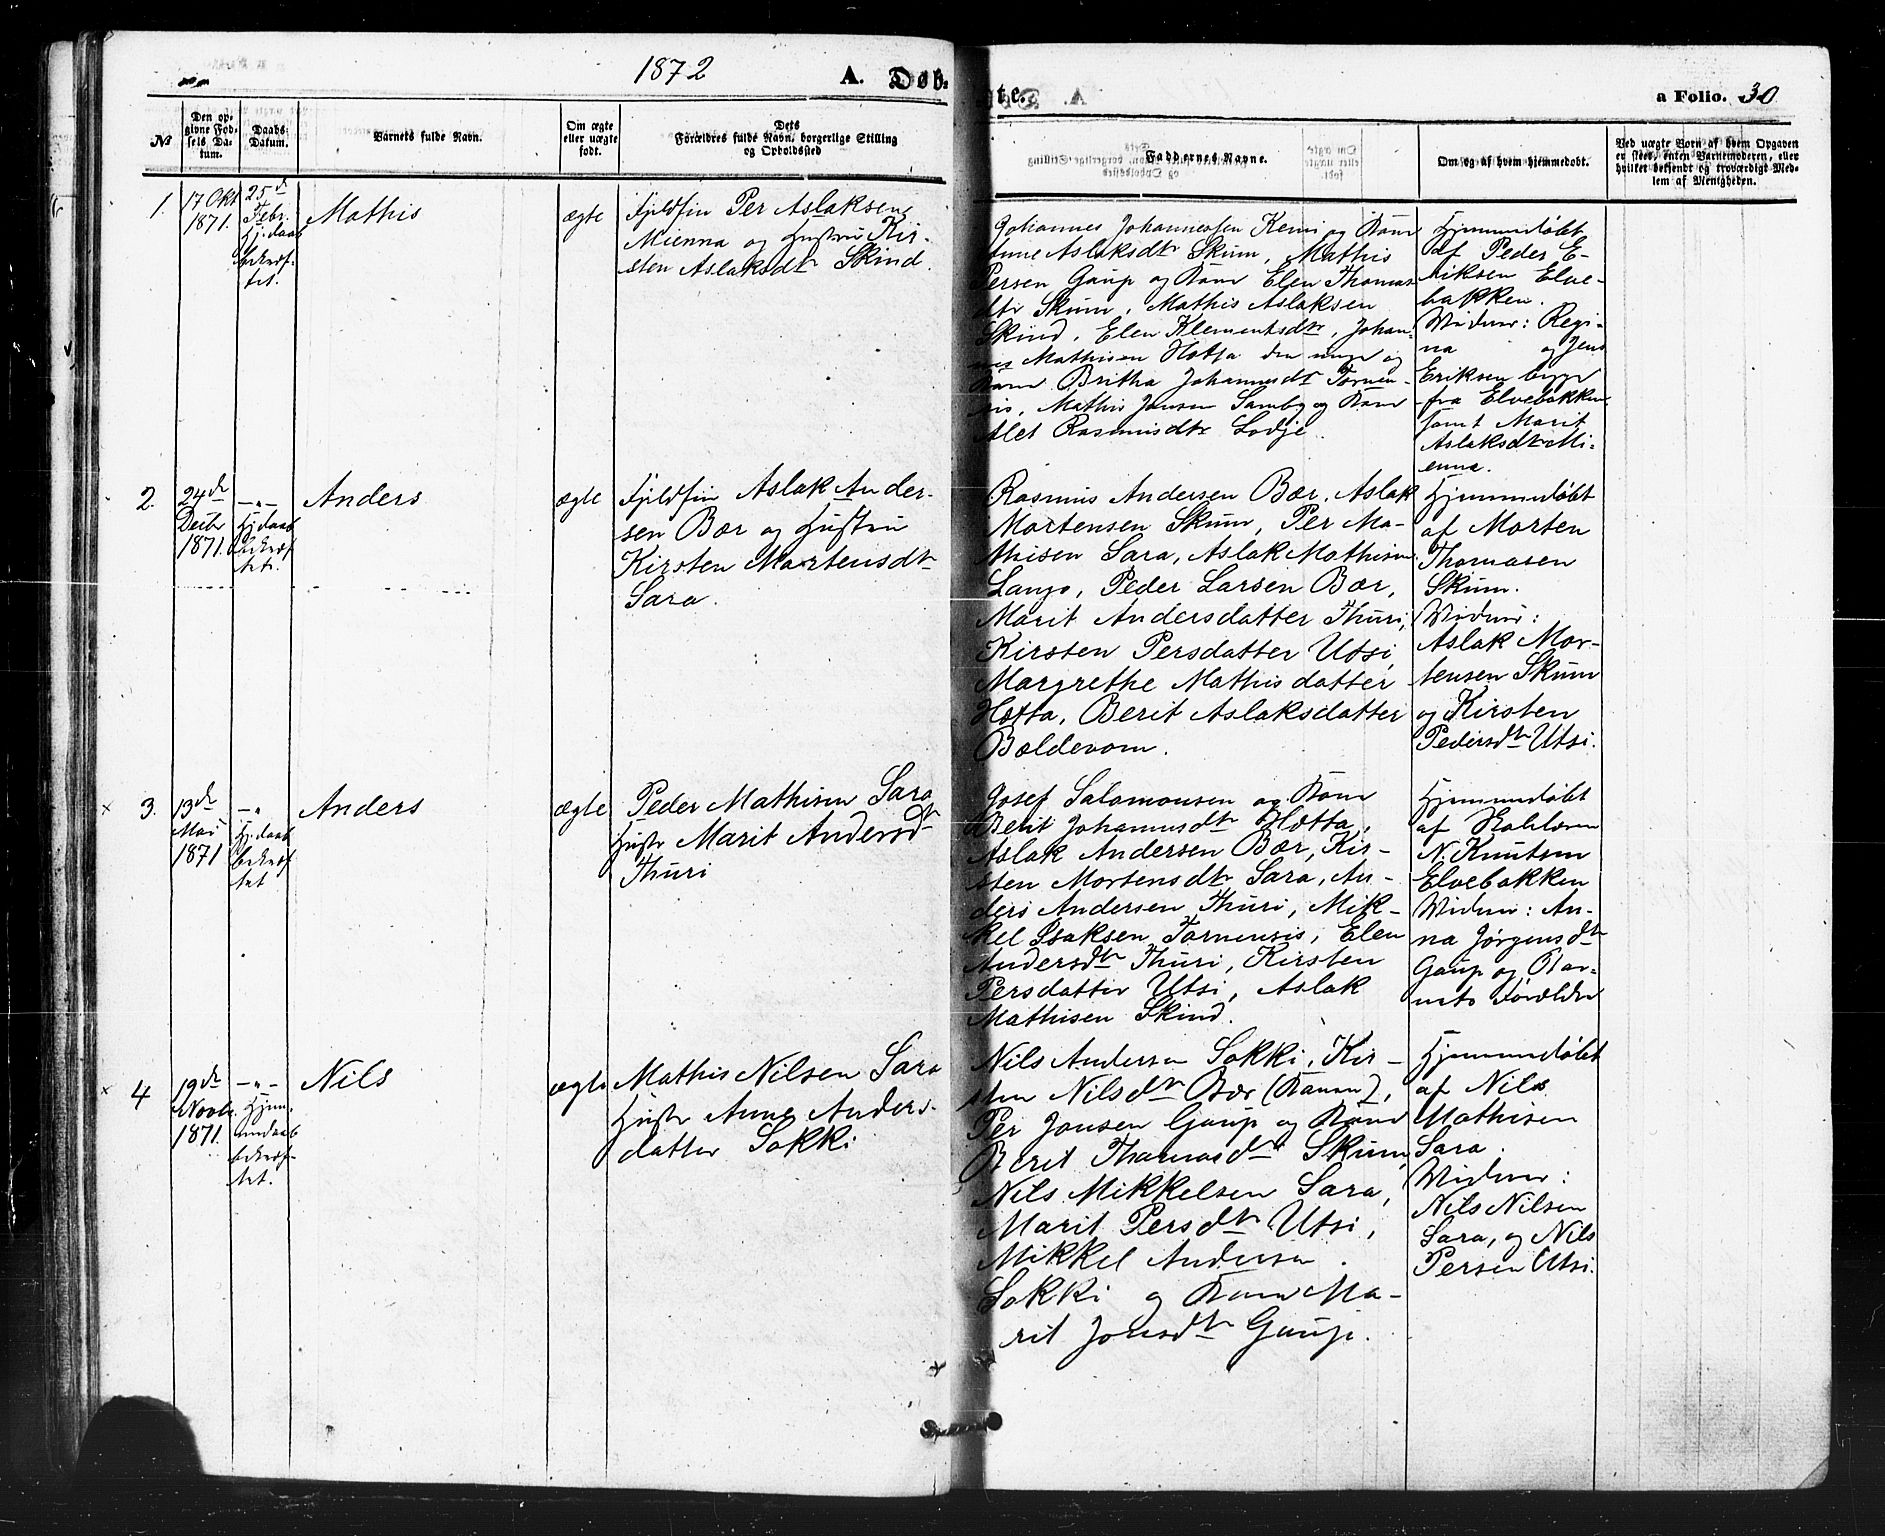 1872
A. Døb-
te.
a Folio. 30
№
Den op-
givne Fød-
sels Da-
tum.
Daabs-
Datum.
Barnets fulde Navn.
Om ægte
eller uægte
født.
Dets
Forældres fulde Navn, borgerlige Stilling
og Opholdssted
Faddernes Navne.
Om og af hvem hjemmedøbt.
Ved uægte Børn af hvem Opgaven
er skeet, enten Barnemoderen, eller
hvilket bekjendt og troværdigt Med-
lem af Menigheden.
1.
17 Okt
1871.
25de
Febr.
Hj.daab
bekræf-
tet.
Mathis
ægte
Fjeldfin Per Aslaksen
Mienna og Hustru Kir-
sten Aslaksdtr Skind.
Johannes Johannessen Kemi og Kone
Anne Aslaksdtr Skum, Mathis
Persen Gaup og Kone Elen Thomas
dtr Skum, Mathis Aslaksen
Skind, Elen Klementsdtr, Johan-
nes Mathisen Hotta den unge og
Kone Britha Johannesdtr Tornen-
sis, Mathis Jonsen Somby og Kone
Alet Rasmusdtr Lodje.
Hjemmedøbt
af Peder E-
riksen Elve-
bakken.
Vidner: Regi-
na og Jens
Eriksen begge
fra Elvebakken
samt Marit
Aslaksdtr Mi-
enna.
2.
24de
Decbr
1871.
-"-
Hj.daab
bekræf-
tet.
Anders
ægte
Fjeldfin Aslak Ander-
sen Bær og Hustru
Kirsten Mortensdtr
Sara.
Rasmus Andersen Bær, Aslak
Mortensen Skum, Per Ma-
thisen Sara, Aslak Mathisen
Lango, Peder Larsen Bær,
Marit Andersdatter Thuri,
Kirsten Persdatter Utsi,
Margrethe Mathisdatter
Hætta, Berit Aslaksdatter
Bældevom.
Hjemmedøbt
af Morten
Thomasen
Skum.
Vidner:
Aslak Mor-
tensen Skum
og Kirsten
Pedersdtr Utsi.
3.
13de
Mai
1871
-"
Hj.daab
bekræf-
tet
Anders
ægte
Peder Mathisen Sara
Hustr Marit Andersdtr
Thuri
Josef Salamonsen og Kone
Berit Johannesdtr Hætta,
Aslak Andersen Bær, Kir-
sten Mortensdtr Sara, An-
ders Andersen Thuri, Mik-
kel Isaksen Tornensis, Elen
Andersdtr Thuri, Kirsten
Persdatter Utsi, Aslak
Mathisen Skind.
Hjemmedøbt
af
N. Knutsen
Elvebakken
Vidner: An-
na Jørgensdtr
Gaup og Bar-
nets Forældre
4
19de
Novbr.
1871.
-"-
Hjem-
medaab
bekræf-
tet.
Nils
ægte
Mathis Nilsen Sara
Hustr Anne Anders-
datter Sokki
Nils Andersen Sokki, Kir-
sten Nilsdtr Bær (Konen),
Per Jonsen Gaup og Kone
Berit Thomasdtr Skum,
Nils Mikkelsen Sara,
Marit Persdtr Utsi,
Mikkel Andersen
Sokki og Kone Ma-
rit Jonsdtr Gaup.
Hjemmedøbt
af Nils
Mathisen
Sara.
Vidner:
Nils Nilsen
Sara, og Nils
Persen Utsi.